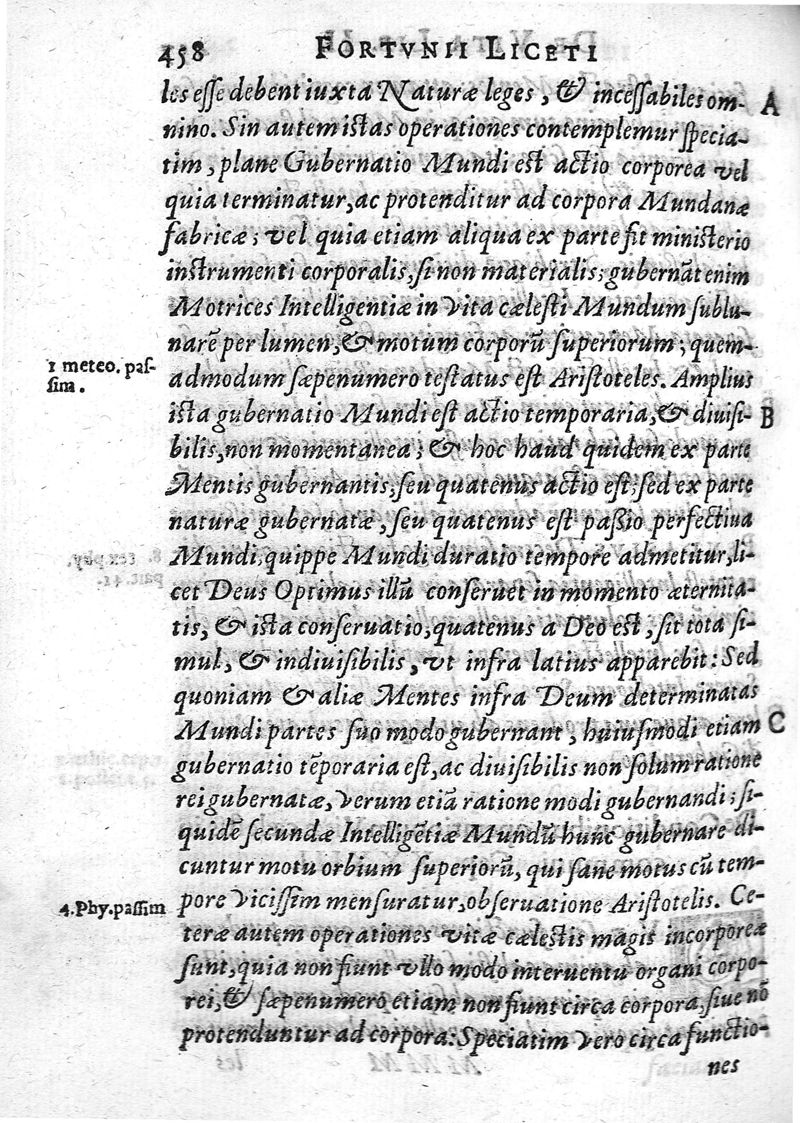 458 FORTVNII LICETI
les esse debent iuxta Naturæ leges, & incessabiles om- A
nino. Sin autem istas operationes contemplemur specia-
tim, plane Gubernatio Mundi est actio corporea vel
quia terminatur, ac protenditur ad corpora Mundanæ
fabricæ; vel quia etiam aliqua ex parte fit ministerio
instrumenti corporalis, si non materialis; gubernāt enim
Motrices Intelligentiæ in vita cælesti Mundum sublu-
narē per lumen, & motum corporū superiorum; quem-
1 meteo. pas-
sim.
admodum sæpenumero testatus est Aristoteles. Amplius
ista gubernatio Mundi est actio temporaria, & diuisi- B
bilis, non momentanea; & hoc haud quidem ex parte
Mentis gubernantis, seu quatenus actio est; sed ex parte
naturæ gubernatæ, seu quatenus est passio perfectiua
Mundi, quippe Mundi duratio tempore admetitur, li-
cet Deus Optimus illū conseruet in momento æternita-
tis, & ista conseruatio, quatenus a Deo est, sit tota si-
mul, & indiuisibilis, vt infra latius apparebit: Sed
quoniam & aliæ Mentes infra Deum determinatas
Mundi partes suo modo gubernant, huiusmodi etiam C
gubernatio tēporaria est, ac diuisibilis non solum ratione
rei gubernatæ, verum etiā ratione modi gubernandi; si-
quidē secundæ Intelligētiæ Mundū hunc gubernare di-
cuntur motu orbium superiorū, qui sane motus cū tem-
4.Phy.passim
pore vicissim mensuratur, obseruatione Aristotelis. Ce-
teræ autem operationes vitæ cælestis magis incorporeæ
sunt, quia non fiunt vllo modo interuentu organi corpo-
rei, & sæpenumero etiam non fiunt circa corpora, siue nō
protenduntur ad corpora: Speciatim vero circa functio-
nes